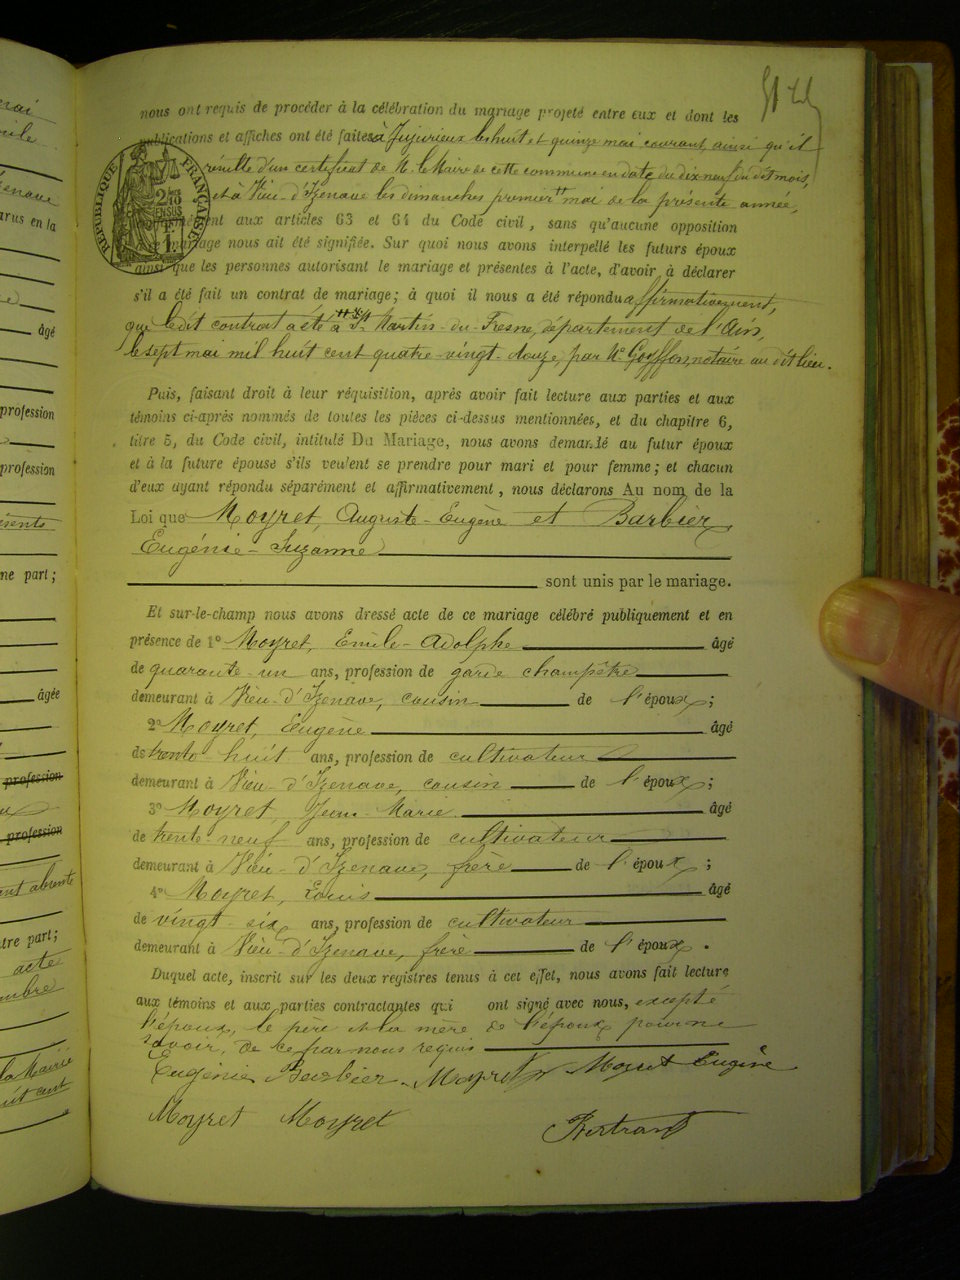 nous ont requis de procéder à la célébration du mariage projeté entre eux et dont les
publications et affiches ont été faites à Jujurieux les huit et quinze mai courant, ainsi qu'il
résulte d'un certificat de M. le Maire de cette commune en date du dix-neuf du dit mois,
et à Vieu-d'Izenave les dimanches premier mai de la présente année,
aux articles 63 et 64 du Code civil, sans qu'aucune opposition
mariage nous ait été signifiée. Sur quoi nous avons interpellé les futurs époux
ainsi que les personnes autorisant le mariage et présentes à l'acte, d'avoir à déclarer
s'il a été fait un contrat de mariage; à quoi il nous a été répondu affirmativement,
que ledit contrat a été à St Martin-du-Fresne, département de l'Ain,
le sept mai mil huit cent quatre-vingt-douze, par Me Goyffon, notaire au dit lieu.
Puis, faisant droit à leur réquisition, après avoir fait lecture aux parties et aux
témoins ci-après nommés de toutes les pièces ci-dessus mentionnées, et du chapitre 6,
titre 5, du Code civil, intitulé Du Mariage, nous avons demandé au futur époux
et à la future épouse s'ils veulent se prendre pour mari et pour femme; et chacun
d'eux ayant répondu séparément et affirmativement, nous déclarons Au nom de la
Loi que Moyret, Auguste-Eugène et Barbier
Eugénie-Suzanne
sont unis par le mariage.
Et sur-le-champ nous avons dressé acte de ce mariage célébré publiquement et en
présence de 1° Moyret, Emile-Adolphe âgé
de quarante-un ans, profession de garde champêtre
demeurant à Vieu-d'Izenave, cousin de l'époux;
2° Moyret, Eugène âgé
de trente-huit ans, profession de cultivateur
demeurant à Vieu-d'Izenave, cousin de l'époux;
3° Moyret, Jean-Marie âgé
de trente-neuf ans, profession de cultivateur
demeurant à Vieu-d'Izenave, frère de l'époux;
4° Moyret, Louis âgé
de vingt-six ans, profession de cultivateur
demeurant à Vieu-d'Izenave, frère de l'époux.
Duquel acte, inscrit sur les deux registres tenus à cet effet, nous avons fait lecture
aux témoins et aux parties contractantes qui ont signé avec nous, excepté
l'époux, le père et la mère de l'époux pour ne
savoir, de ce par nous requis
Eugénie Barbier Moyret Moyret Eugène
Moyret Moyret Bertrand
RÉPUBLIQUE FRANÇAISE
2/10 EN SUS
âgé
profession
profession
ne part;
âgée
profession
profession
tre part;
acte
la Mairie